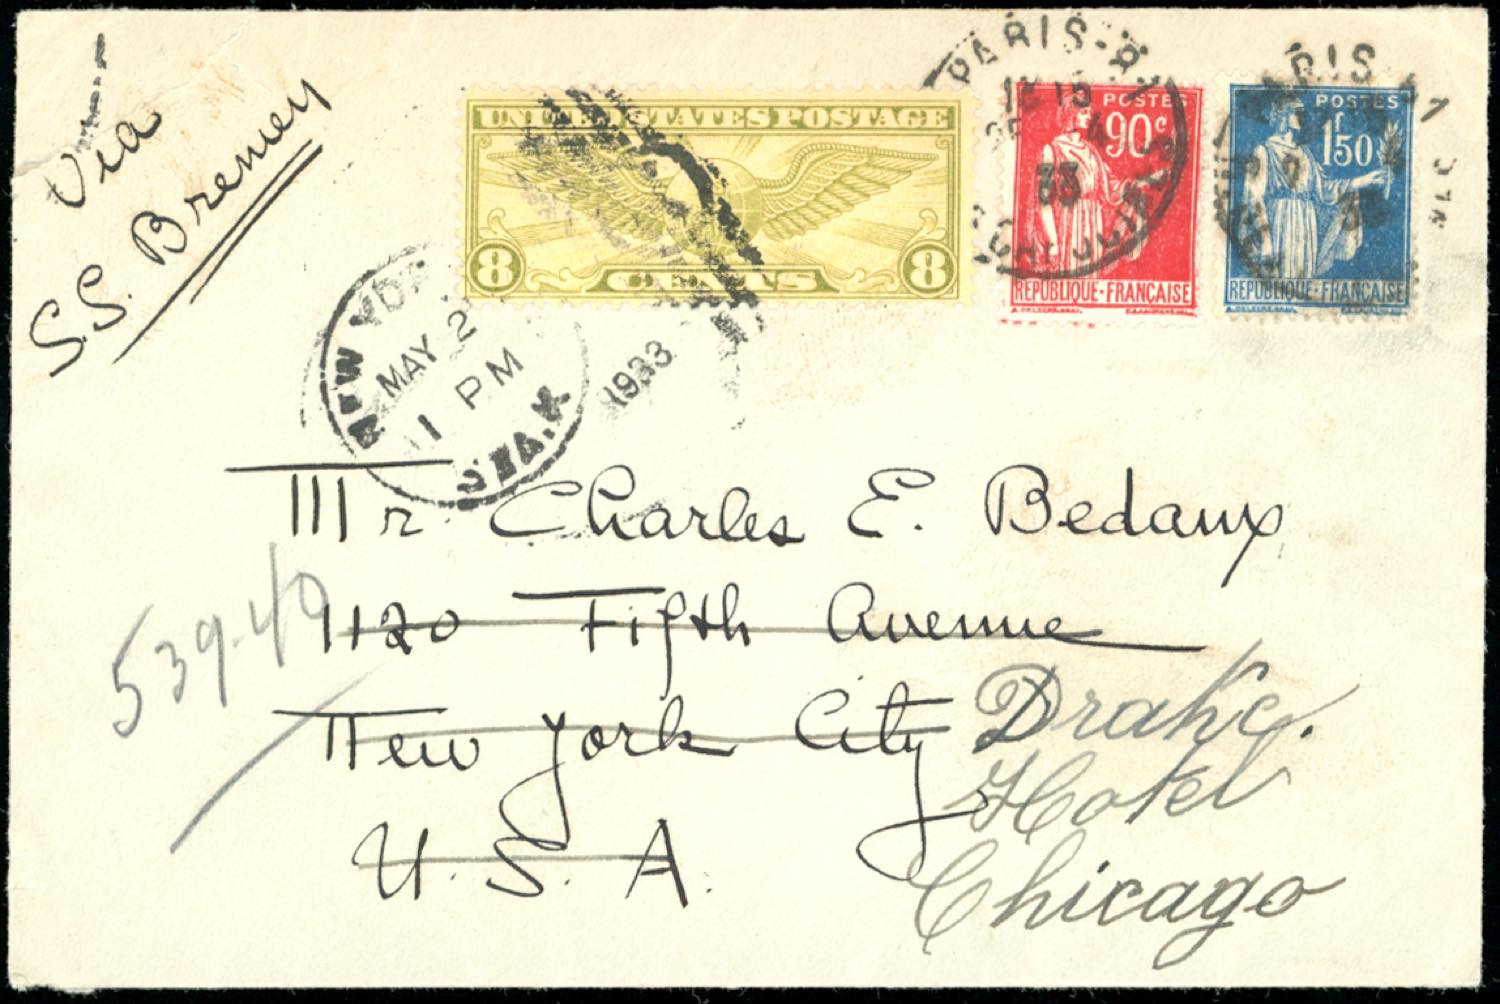 Via
S.S. Bremen
UNITED STATES POSTAGE
8 CENTS 8
PARIS
18 15
33
POSTES
90c
REPUBLIQUE·FRANÇAISE
PARIS
POSTES
1f50
REPUBLIQUE·FRANÇAISE
NEW YORK
MAY 2
11 PM
1933
Mr. Charles E. Bedaux
1120 Fifth Avenue
New York City
U.S.A.
539-40
Drake
Hotel
Chicago